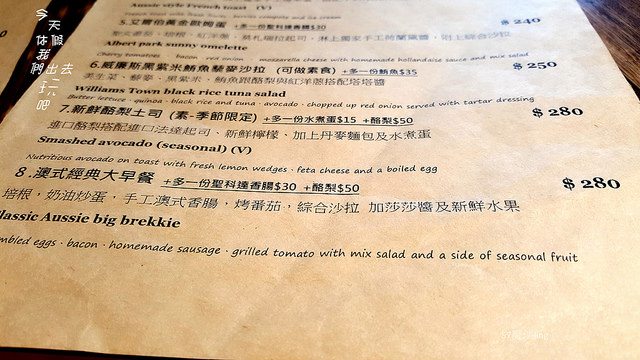 今天休假
我們出去玩吧
Aussie style French toast (V)
5.艾爾伯黃金歐姆蛋 +多一份聖科達香腸$30 $240
Albert park sunny omelette
Cherry tomatoes bacon · red onion · mozzarella cheese with homemade hollandaise sauce and mix salad
6.威廉斯黑紫米鮪魚藜麥沙拉 (可做素食) +多一份鮪魚$35 $250
美生菜、藜麥、黑紫米、鮪魚跟酪梨與紅洋蔥搭配塔塔醬
Williams Town black rice tuna salad
Butter lettuce · quinoa · black rice and tuna · avocado · chopped up red onion served with tartar dressing
7.新鮮酪梨土司 (素-季節限定) +多一份水煮蛋$15 +酪梨$50 $280
進口酪梨搭配進口法達起司、新鮮檸檬、加上丹麥麵包及水煮蛋
Smashed avocado (seasonal) (V)
Nutritious avocado on toast with fresh lemon wedges · feta cheese and a boiled egg
8.澳式經典大早餐 +多一份聖科達香腸$30 +酪梨$50 $280
培根，奶油炒蛋，手工澳式香腸，烤番茄，綜合沙拉 加莎莎醬及新鮮水果
lassic Aussie big brekkie
mbled eggs · bacon · homemade sausage · grilled tomato with mix salad and a side of seasonal fruit